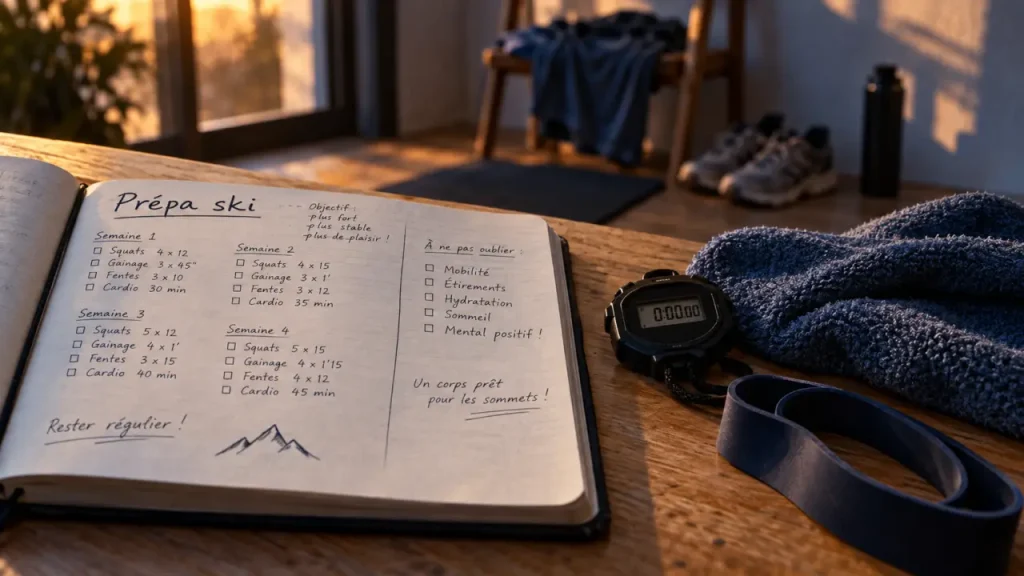 Prépa ski
Objectif :
plus fort
plus stable
plus de plaisir !
Semaine 1
Squats 4 x 12
Gainage 3 x 45"
Fentes 3 x 10
Cardio 30 min
Semaine 2
Squats 4 x 15
Gainage 3 x 1'
Fentes 3 x 12
Cardio 35 min
Semaine 3
Squats 5 x 12
Gainage 4 x 1'
Fentes 3 x 15
Cardio 40 min
Semaine 4
Squats 5 x 15
Gainage 4 x 1'15
Fentes 4 x 12
Cardio 45 min
Rester régulier !
À ne pas oublier :
Mobilité
Étirements
Hydratation
Sommeil
Mental positif !
Un corps prêt
pour les sommets !
0:00.00